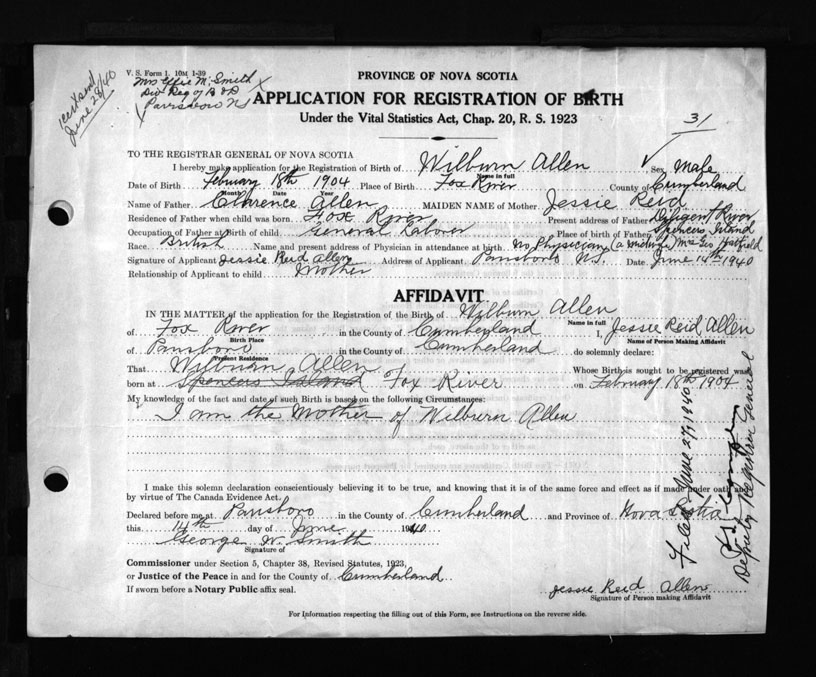 V. S. Form 1. 10M 1-39
Mrs Effie M. Smith
Div Reg of B & D
Parrsboro NS
Cert sent
June 28/40
PROVINCE OF NOVA SCOTIA
APPLICATION FOR REGISTRATION OF BIRTH
Under the Vital Statistics Act, Chap. 20, R. S. 1923
31
TO THE REGISTRAR GENERAL OF NOVA SCOTIA
I hereby make application for the Registration of Birth of Wilburn Allen Sex Male
Name in full
Date of Birth February 18th 1904 Place of Birth Fox River County of Cumberland
Month Date Year
Name of Father Clarence Allen MAIDEN NAME of Mother Jessie Reid
Residence of Father when child was born. Fox River Present address of Father Diligent River
Occupation of Father at Birth of child General Laborer Place of birth of Father Spencers Island
Race British Name and present address of Physician in attendance at birth. No Physician (a midwife) Mrs Geo Hatfield
Signature of Applicant Jessie Reid Allen Address of Applicant Parrsboro N.S. Date June 14th 1940
Relationship of Applicant to child Mother
AFFIDAVIT
IN THE MATTER of the application for the Registration of the Birth of Wilburn Allen
Name in full
of Fox River in the County of Cumberland I, Jessie Reid Allen
Birth Place Name of Person Making Affidavit
of Parrsboro in the County of Cumberland do solemnly declare:
Present Residence
That Wilburn Allen Whose Birth is sought to be registered was
born at Spencers Island Fox River on February 18th 1904
My knowledge of the fact and date of such Birth is based on the following Circumstances:
I am the Mother of Wilburn Allen
I make this solemn declaration conscientiously believing it to be true, and knowing that it is of the same force and effect as if made under oath and
by virtue of The Canada Evidence Act.
Declared before me at Parrsboro in the County of Cumberland and Province of Nova Scotia
this 14th day of June 1940
George W. Smith
Signature of
Commissioner under Section 5, Chapter 38, Revised Statutes, 1923,
or Justice of the Peace in and for the County of Cumberland
If sworn before a Notary Public affix seal.
Jessie Reid Allen
Signature of Person making Affidavit
For Information respecting the filling out of this Form, see Instructions on the reverse side.
Filed June 27, 1940
Deputy Registrar General